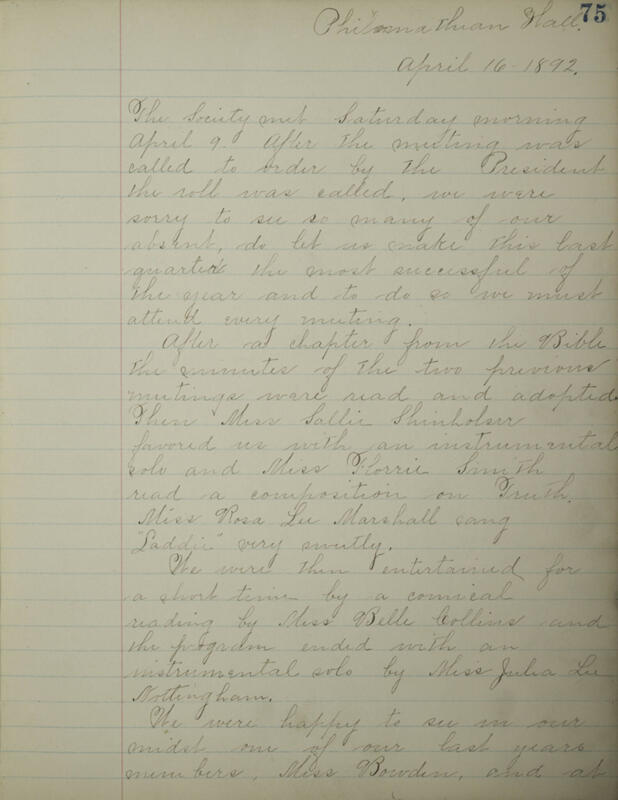 75
Philomathian Hall.
April 16 - 1892.
The Society met Saturday morning
April 9. After the meeting was
called to order by the President
the roll was called, we were
sorry to see so many of our
absent, do let us make this last
quarter the most successful of
the year and to do so we must
attend every meeting.
After a chapter from the Bible
the minutes of the two previous
meetings were read and adopted.
Then Miss Sallie Shinholser
favored us with an instrumental
solo and Miss Florrie Smith
read a composition on Truth.
Miss Rosa Lee Marshall sang
"Laddie" very sweetly.
We were then entertained for
a short time by a comical
reading by Miss Belle Collins and
the program ended with an
instrumental solo by Miss Julia Lee
Nottingham.
We were happy to see in our
midst one of our last years
members, Miss Bowden, and at